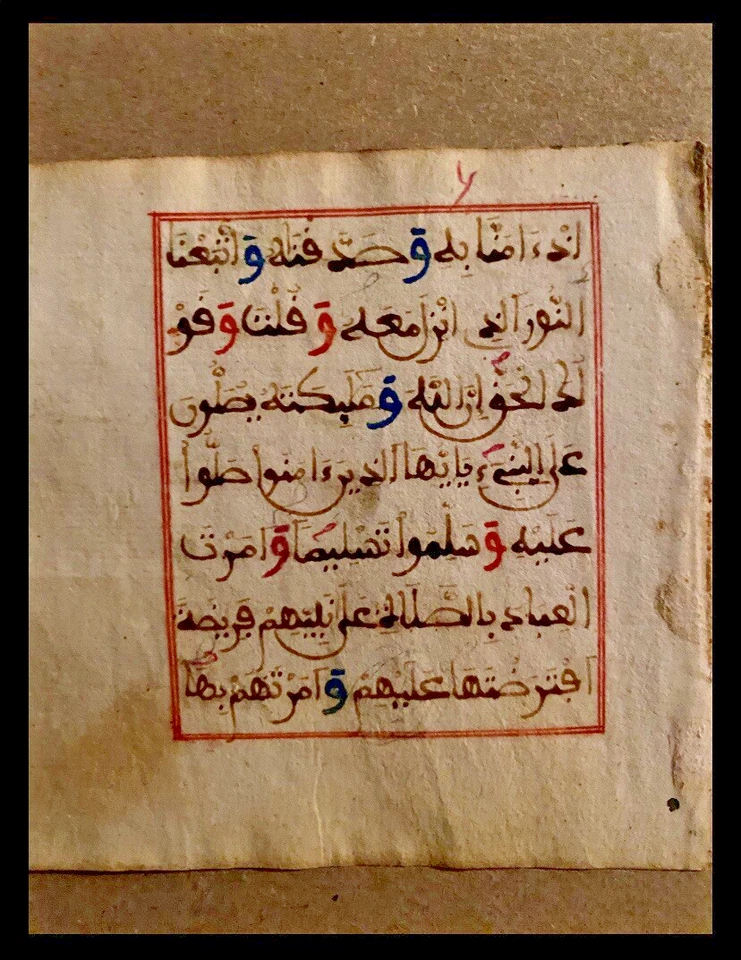 اذءامنا به وصدفنه واتبعنا
النور الذي انزل معه وفلت وفو
لك الحق ان الله وملئكته يصلون
على النبيء يايها الذين ءامنوا صلوا
عليه وسلموا تسليما وامرت
العباد بالصلاة على نبيهم فريضة
افترضتها عليهم وامرتهم بها